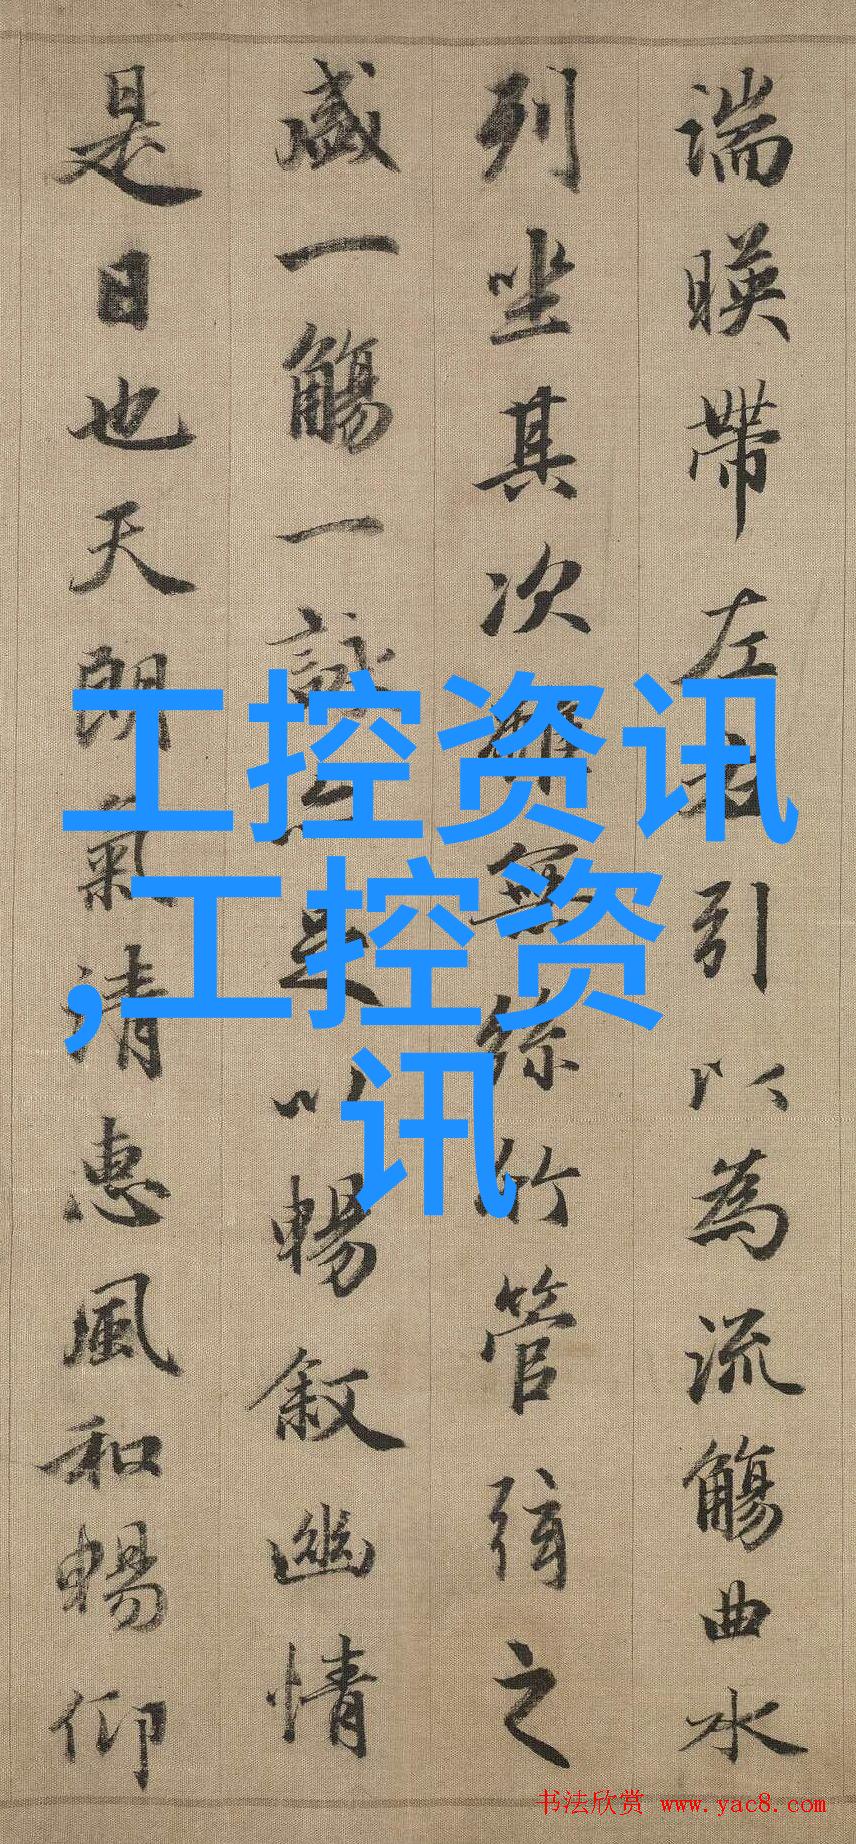 湍暎帶左右引以為流觴曲水
列坐其次雖無絲竹管弦之
盛一觴一詠亦足以暢叙幽情
是日也天朗氣清惠風和暢仰
工控资讯
,工控资
讯
书法欣赏 www.yac8.com